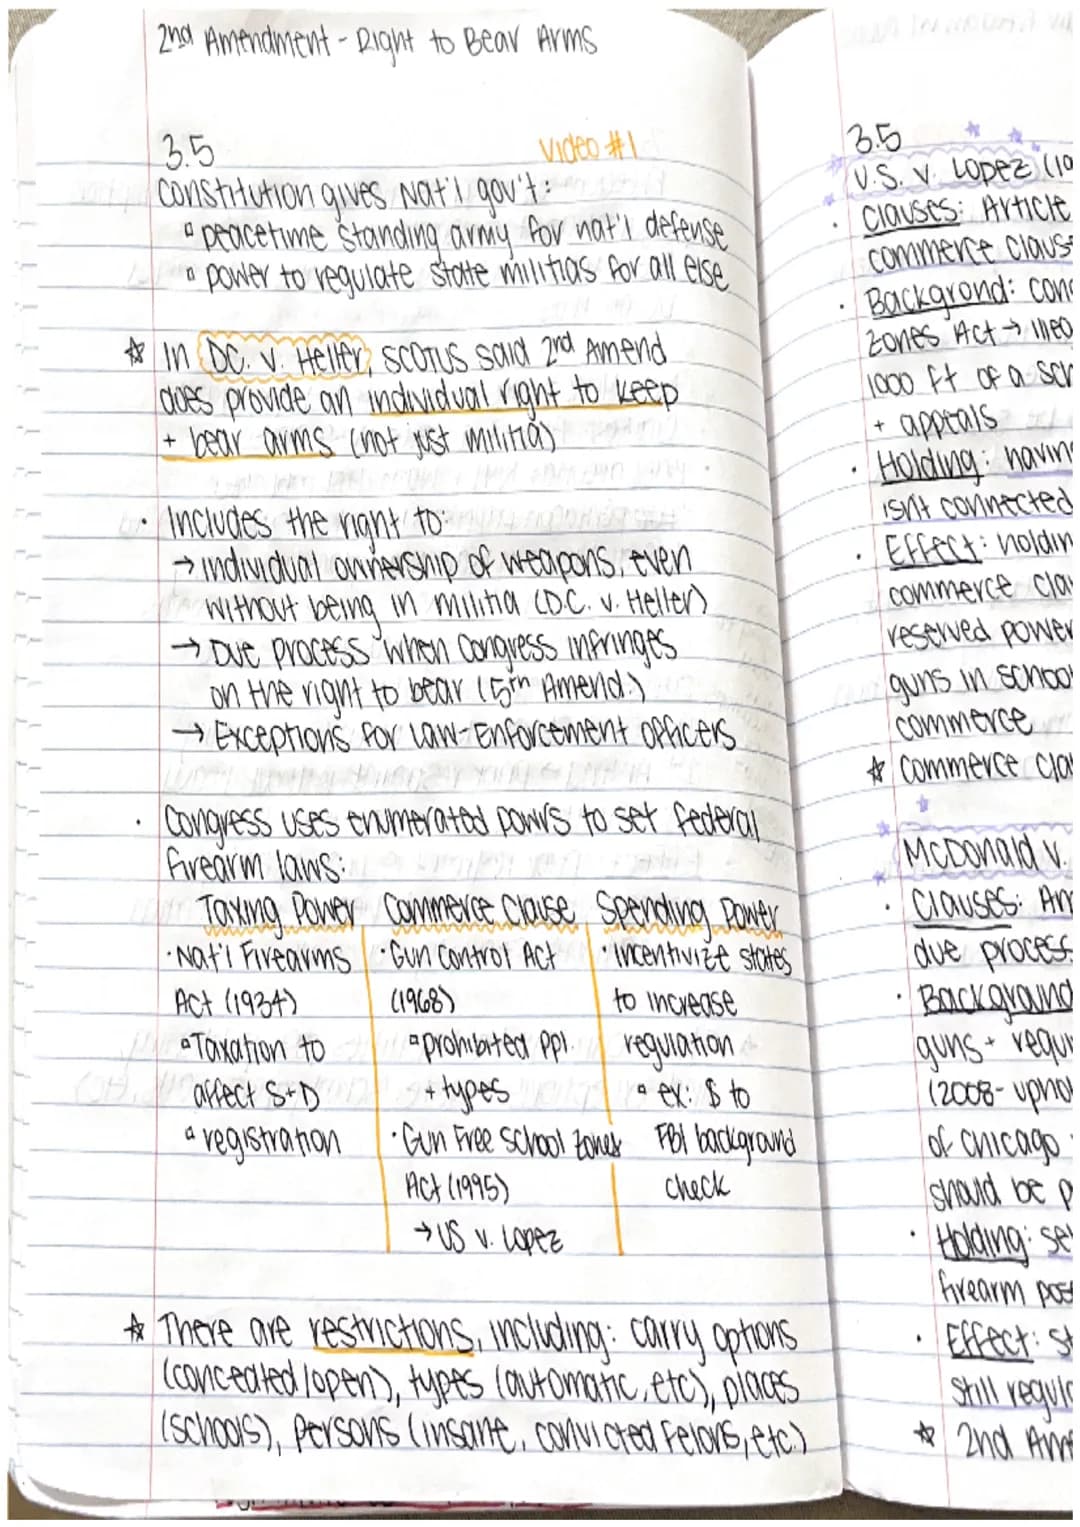 2nd Amendment - Right to Bear Arms
3.5
Video #1
Constitution gives Nat'l gov't:
▫ peacetime standing army for nat'l defense
▫ power to regulate state militias for all else
☆ In DC. v. Heller, SCOTUS said 2nd Amend
does provide an individual right to keep
+ bear arms (not just militia)
• Includes the right to:
→ individual ownership of weapons, even
without being in militia (D.C. v. Heller)
→ Due process when Congress infringes
on the right to bear (5th Amend.)
→ Exceptions for Law-Enforcement officers
• Congress uses enumerated powrs to set federal
firearm laws:
Taxing Power
• Nat'l Firearms
Act (1934)
▫ Taxation to
affect S+D
▫ registration
Commerce Clause
• Gun Control Act
(1968)
▫ prohibited ppl.
+ types
• Gun Free School Zones
Act (1995)
→ US v. Lopez
Spending Power
• Incentivize states
to increase
regulation
▫ ex: $ to
FBI background
check
☆ There are restrictions, including: carry options
(concealed/open), types (automatic, etc), places
(schools), persons (insane, convicted felons, etc.)
3.5
U.S. v. Lopez (19
• Clauses: Article
commerce claus
• Backgrond: con
zones Act → illeg
1000 ft of a sch
+ appeals
• Holding: havin
isnt connected
• Effect: holdin
commerce cla
reserved power
guns in school
commerce
☆ Commerce cla
McDonald v.
• Clauses: Am
due process
• Background
guns + requi
(2008- uphol
of Chicago
should be p
• Holding: se
firearm pos
• Effect: st
still regula
☆ 2nd Ame